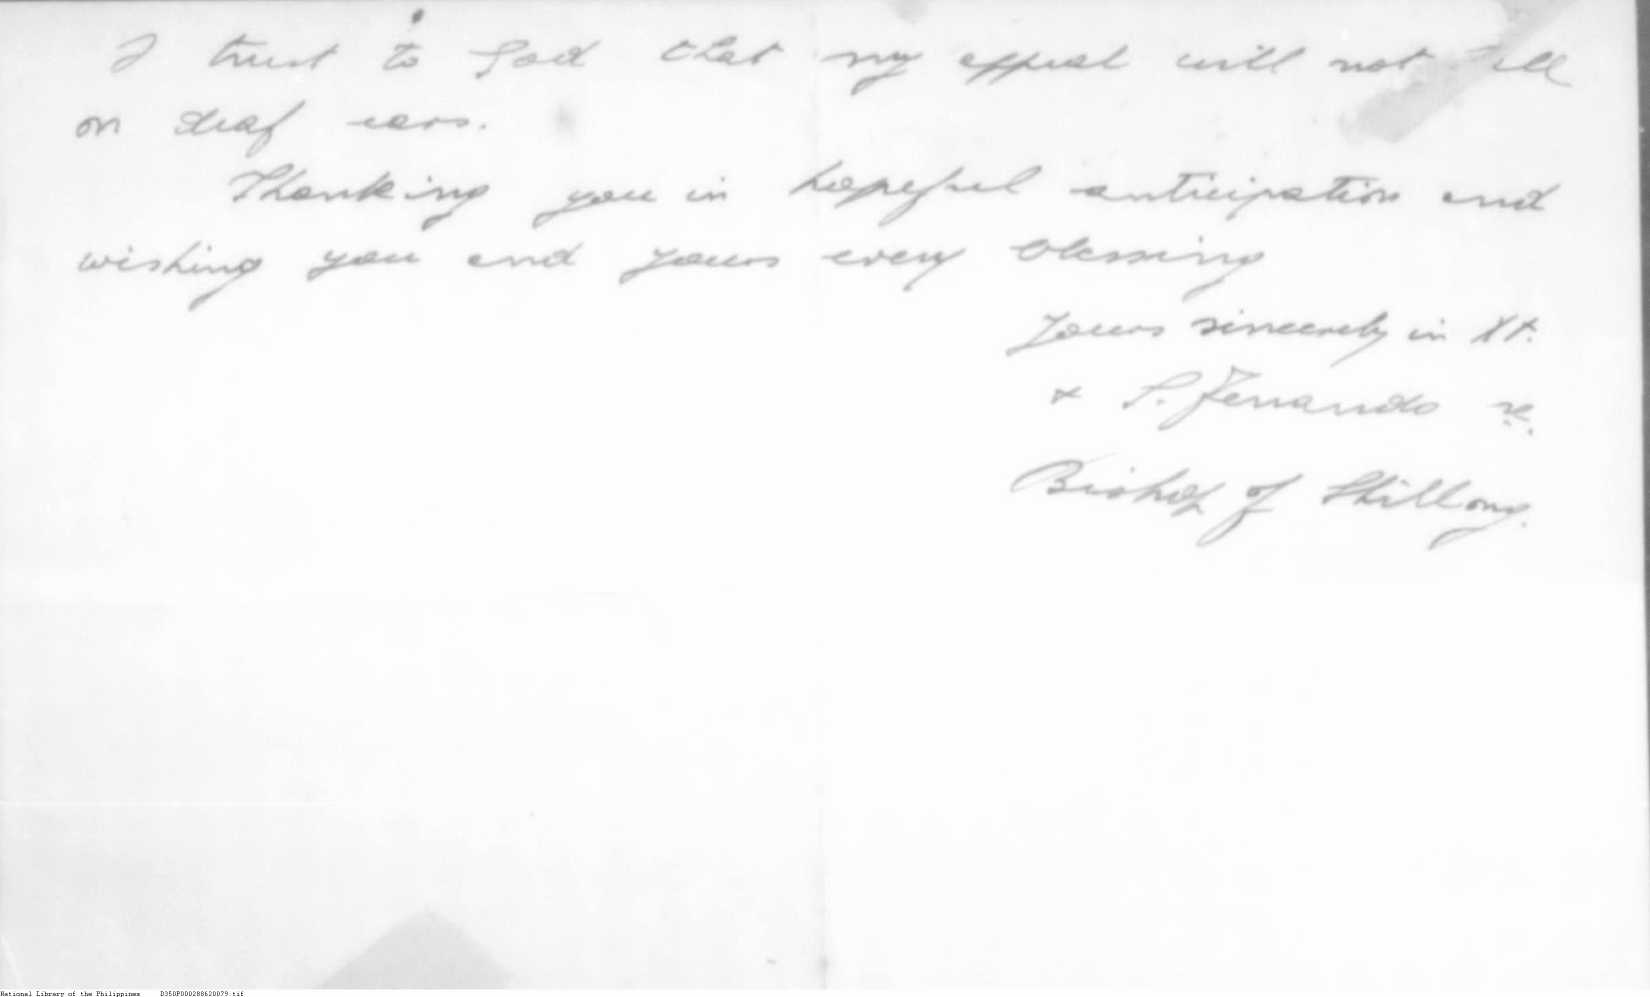 I trust to God that my appeal will not fall
on deaf ears.
Thanking you in hopeful anticipation and
wishing you and yours every blessing
Yours sincerely in Xt.
+ S. Ferrando
Bishop of Shillong.
National Library of the Philippines D350P000288620079.tif